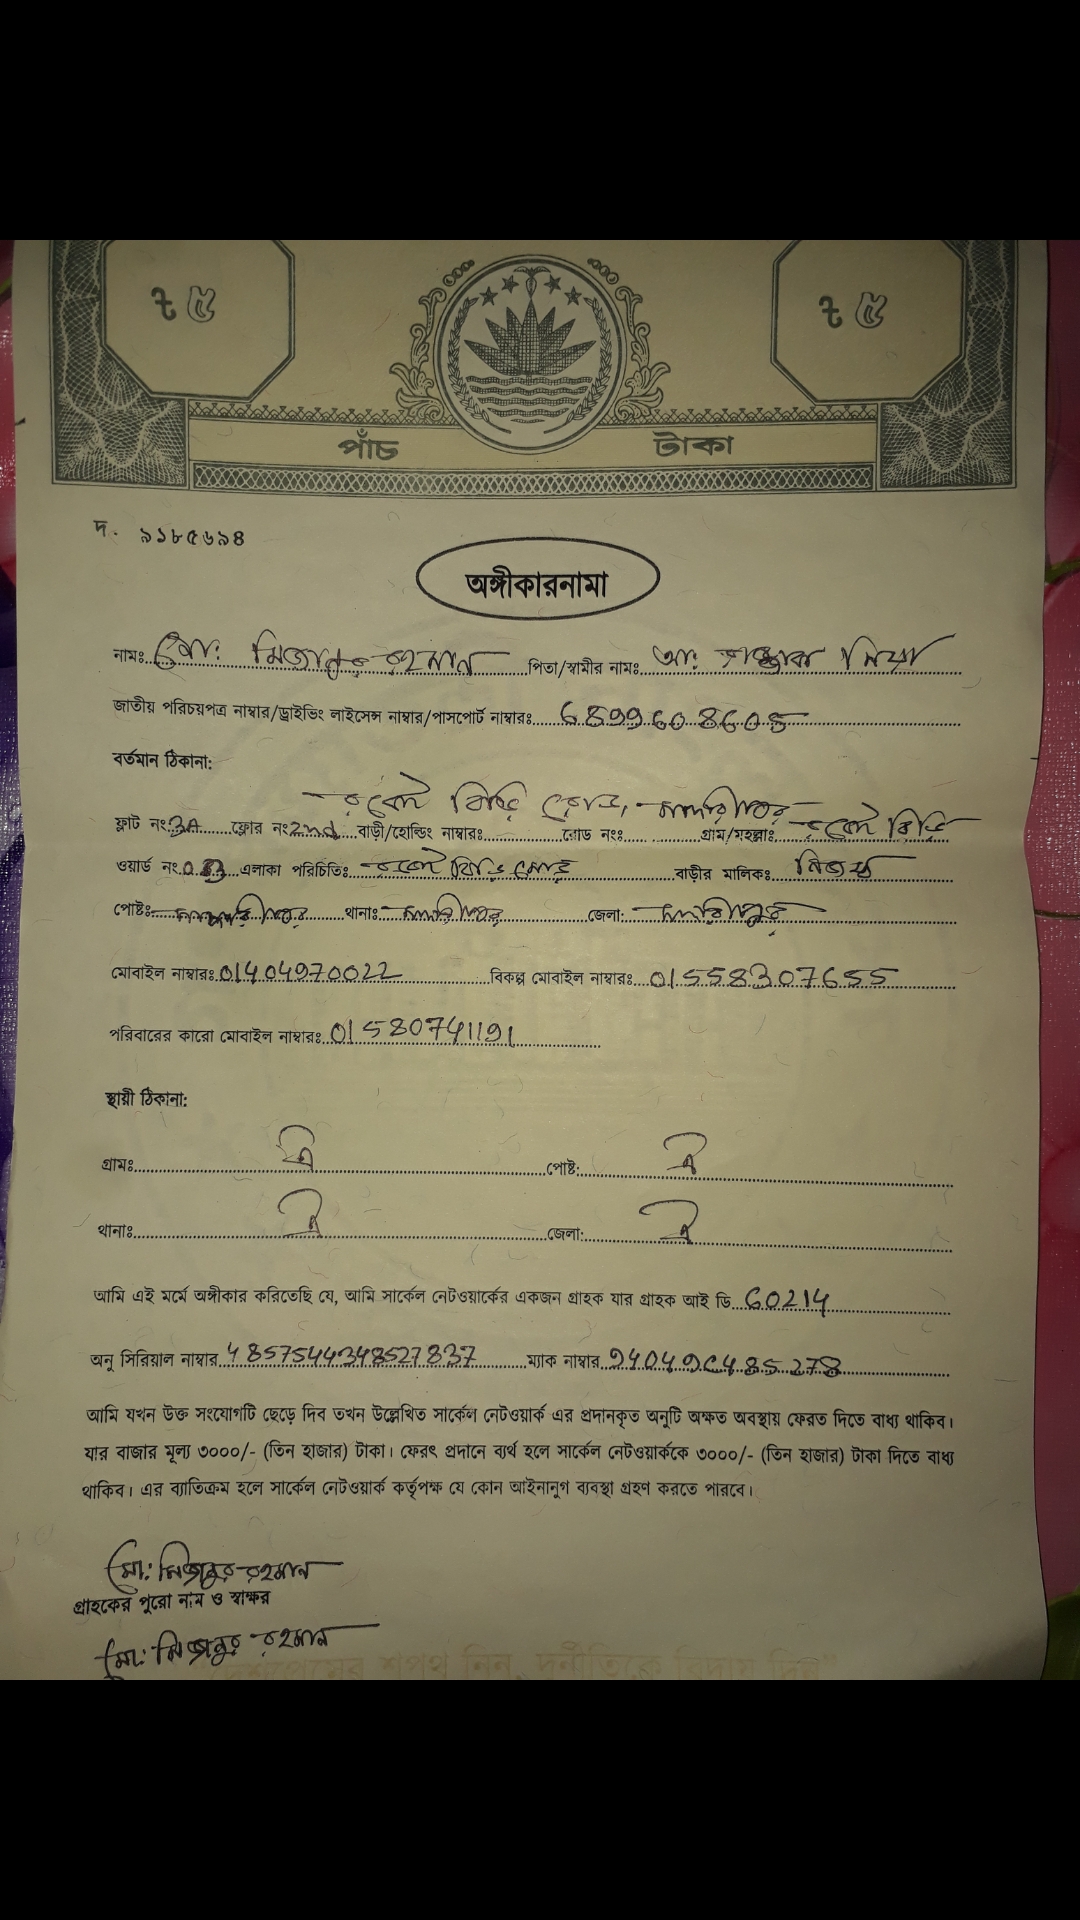 ৳ ৫ ৳ ৫
পাঁচ টাকা
দ. ৯১৮৫৬৯৪
অঙ্গীকারনামা
নামঃ মো: মিজানুর রহমান পিতা/স্বামীর নামঃ আ: মিয়া
জাতীয় পরিচয়পত্র নাম্বার/ড্রাইভিং লাইসেন্স নাম্বার/পাসপোর্ট নাম্বারঃ 6899608605
বর্তমান ঠিকানা:
ফ্লাট নং 3A ফ্লোর নং 2nd বাড়ী/হোল্ডিং নাম্বারঃ রোড নংঃ গ্রাম/মহল্লাঃ
ওয়ার্ড নং এলাকা পরিচিতিঃ বাড়ীর মালিকঃ নিজস্ব
পোষ্টঃ মাদারীপুর থানাঃ মাদারীপুর জেলা: মাদারীপুর
মোবাইল নাম্বারঃ 01404970022 বিকল্প মোবাইল নাম্বারঃ 01558307655
পরিবারের কারো মোবাইল নাম্বারঃ 01580741191
স্থায়ী ঠিকানা:
গ্রামঃ ঐ পোষ্ট: ঐ
থানাঃ ঐ জেলা: ঐ
আমি এই মর্মে অঙ্গীকার করিতেছি যে, আমি সার্কেল নেটওয়ার্কের একজন গ্রাহক যার গ্রাহক আই ডি 60214
অনু সিরিয়াল নাম্বার 4857544348527837 ম্যাক নাম্বার 94049C485278
আমি যখন উক্ত সংযোগটি ছেড়ে দিব তখন উল্লেখিত সার্কেল নেটওয়ার্ক এর প্রদানকৃত অনুটি অক্ষত অবস্থায় ফেরত দিতে বাধ্য থাকিব।
যার বাজার মূল্য ৩০০০/- (তিন হাজার) টাকা। ফেরৎ প্রদানে ব্যর্থ হলে সার্কেল নেটওয়ার্ককে ৩০০০/- (তিন হাজার) টাকা দিতে বাধ্য
থাকিব। এর ব্যাতিক্রম হলে সার্কেল নেটওয়ার্ক কর্তৃপক্ষ যে কোন আইনানুগ ব্যবস্থা গ্রহণ করতে পারবে।
মো: মিজানুর রহমান
গ্রাহকের পুরো নাম ও স্বাক্ষর
মো: মিজানুর রহমান
"দেশপ্রেমের শপথ নিন, দুর্নীতিকে বিদায় দিন"